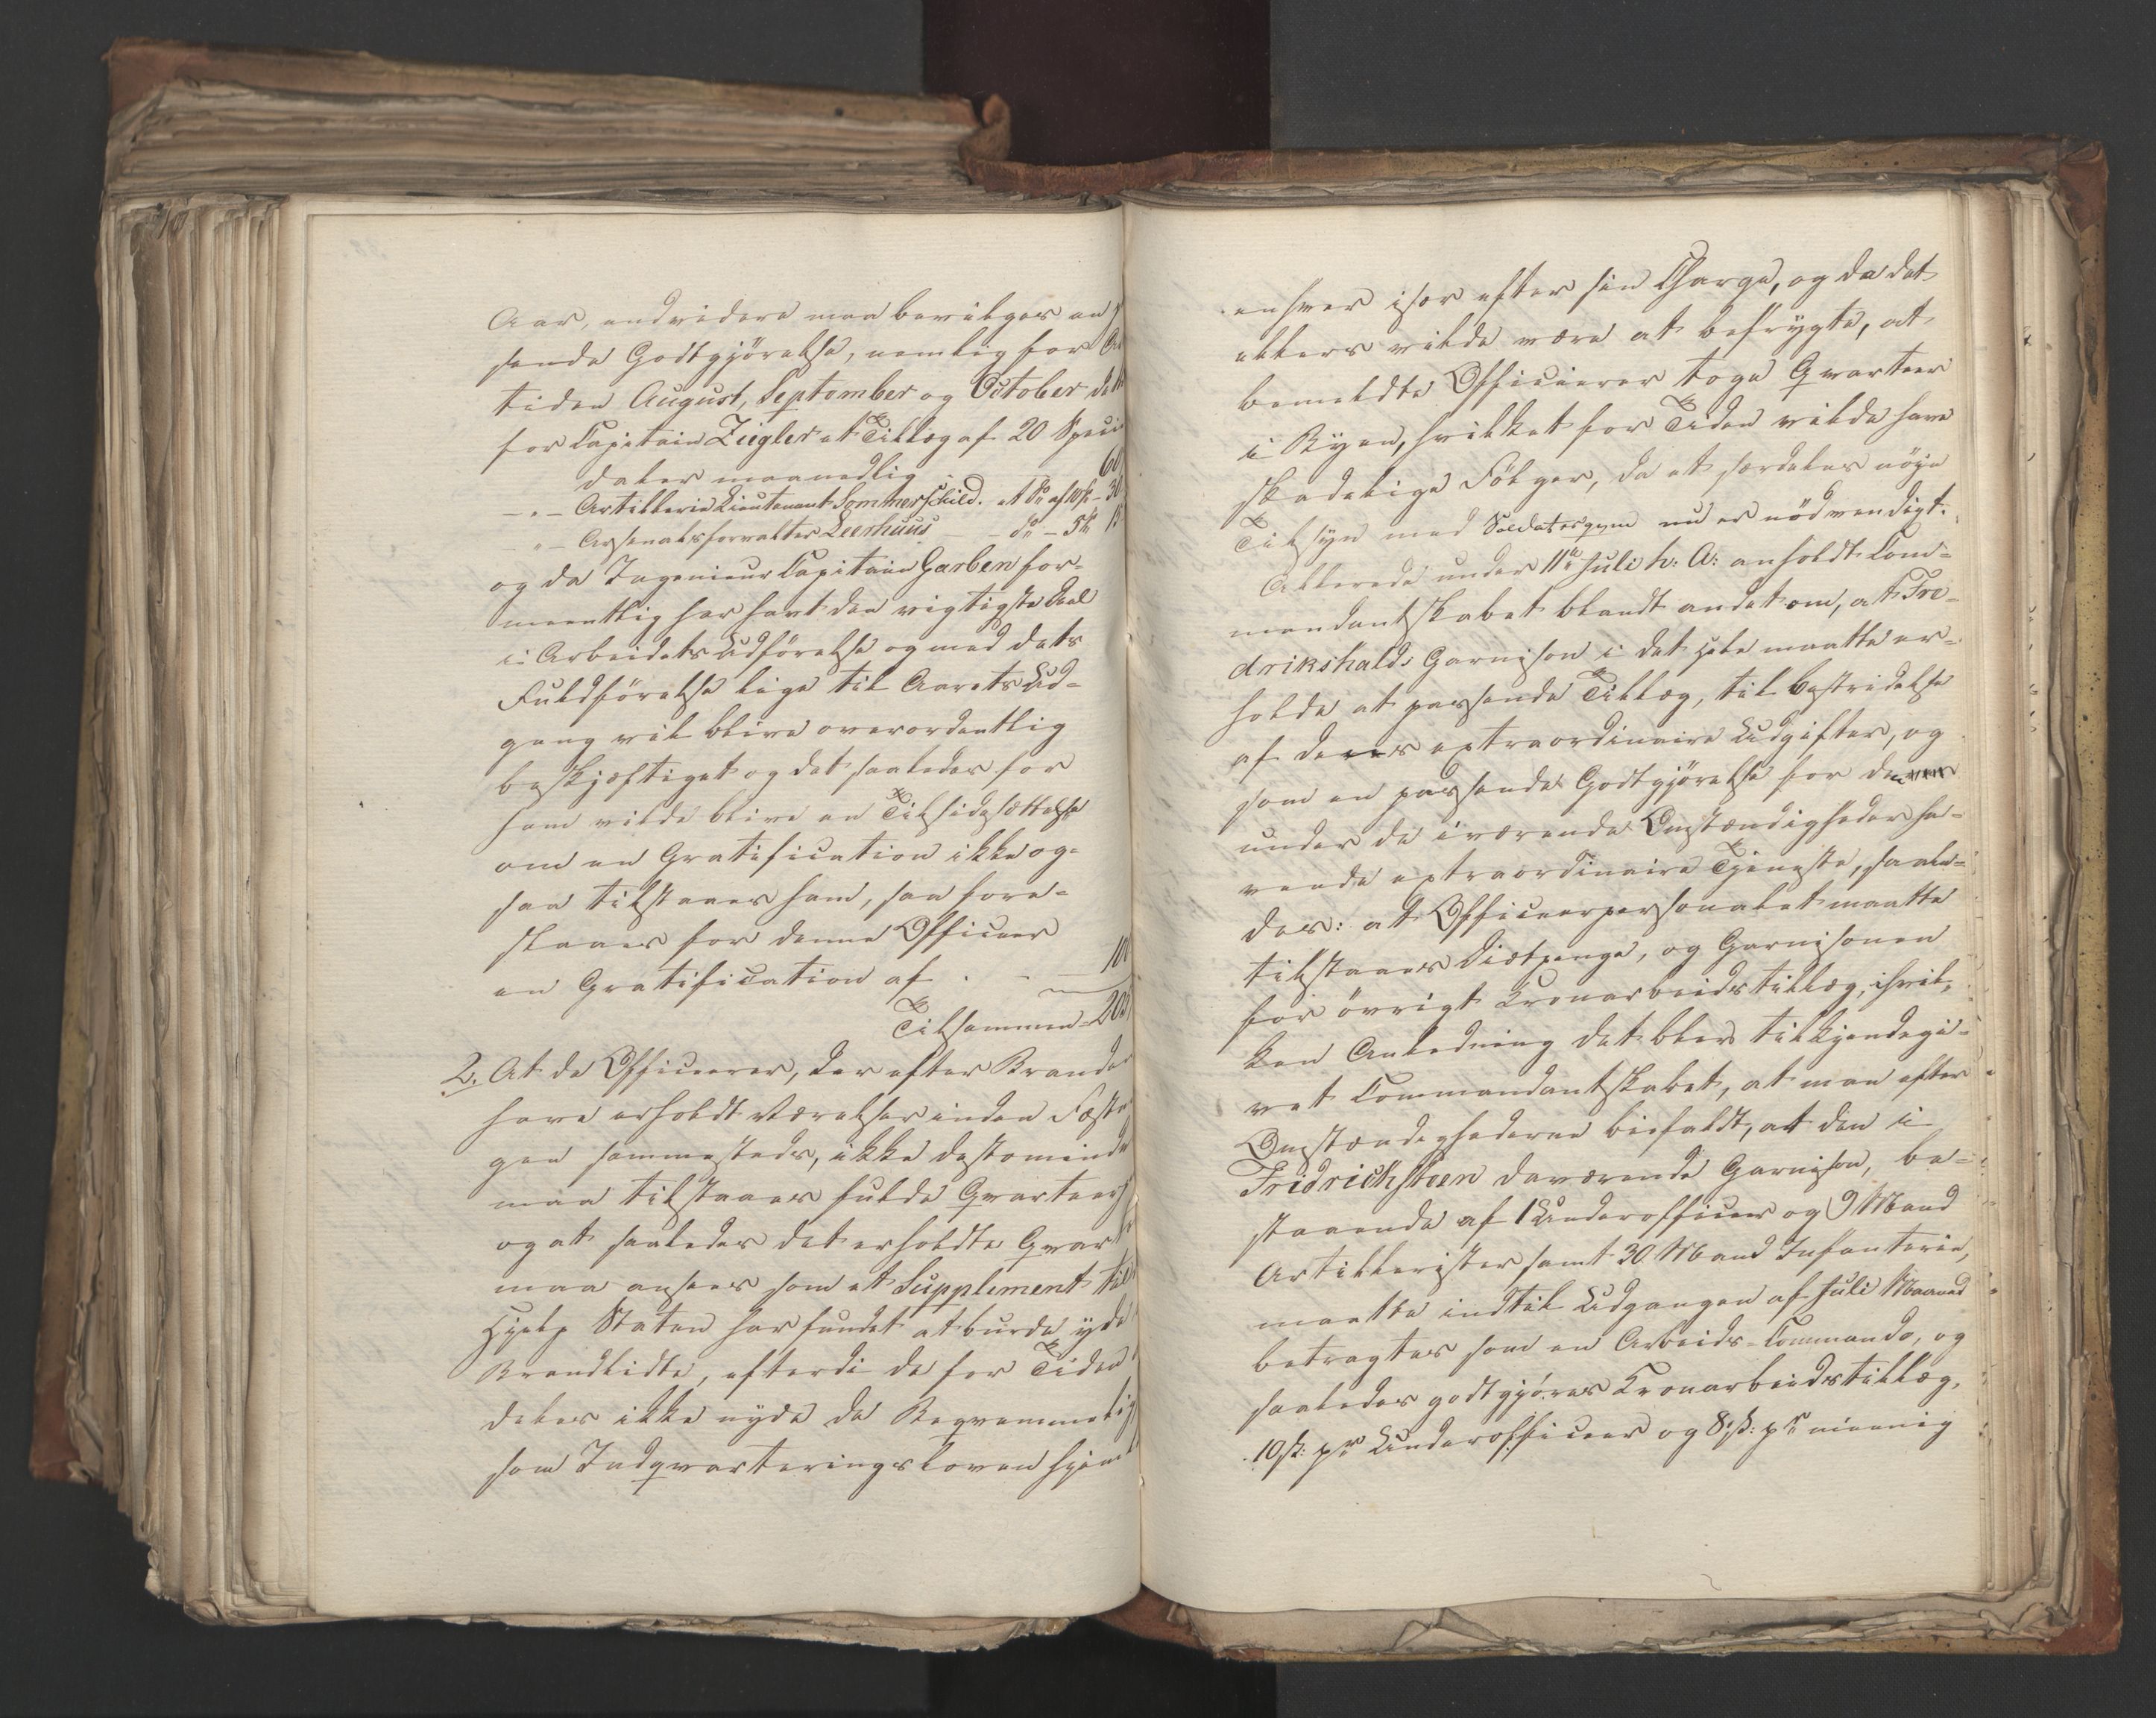 Aar, endvidere maa bevilges en
sende Godtgjörelse, nemlig for
tiden August, September og October
for Capitain Ziegler et Tillæg af 20 Speci
daler maanedlig 60
— " — Artillerie Lieutenant Sommerschild. et do af 10 sp - 30
— " — Arsenalsforvalter Leerhuus — do — 5 sp 15
og da Ingenieur Capitain Garben for-
meentlig har havt den vigtigste Deel
i Arbeidets Udförelse og med dets
Fuldförelse lige til Aarets Ud-
gang vil blive overordentlig
beskjæftiget og det saaledes for
ham vilde blive en Tilsidesættelse
om en Gratification ikke og-
saa tilstaaes ham, saa fore-
slaaes for denne Officeer
en Gratification af . . — 100
Tilsammen - 205
2. At de Officerer, der efter Branden
have erholdt Værelser inden Fæstn
gen sammesteds, ikke destomindre
maa tilstaaes fulde Qvarteer
og at saaledes det erholdte Qvart
maa ansees som et Supplement til
Hjelp Staten har fundet at burde yde
Brandlidte, efterdi de for Tiden
deles ikke nyde de Beqvemmelig
som Indqvarteringsloven hjem
enhver især efter sin Charge, og da det
ellers vilde være at befrygte, at
bemeldte Officierer toge Qvarteer
i Byen, hvilket for Tiden vilde have
skadelige Fölger, da et særdeles nöye
Tilsyn med Soldatesqven nu er nödvendigt.
Allerede under 11te Juli h: A: anholdt Com-
mandantskabet blandt andet om, at Fre-
drikshalds Garnison i det Hele maatte er-
holde et passende Tillæg, til Bestridelse
af deres extraordinaire Udgifter, og
som en passende Godtgjörelse for den
under de iværende Omstændigheder ha-
vende extraordinaire Tjeneste, saale-
des: at Officeerpersonalet maatte
tilstaaes Diætpenge, og Garnisonen
for övrigt Kronarbeidstillæg, i hvil-
ken Anledning det blev tilkjendegi-
vet Commandantskabet, at man efter
Omstændighederne biefaldt, at den i
Fridrichsteen daværende Garnison, be-
staaende af 1 Underofficeer og 9 Mand
Artillerister samt 30 Mand Infanterie,
maatte indtil Udgangen af Juli Maaned
betragtes som en Arbeids-Commando, og
saaledes godtgjöres Kronarbeidstillæg,
10 sk: pr Underofficeer og 8 sk: pr meenig